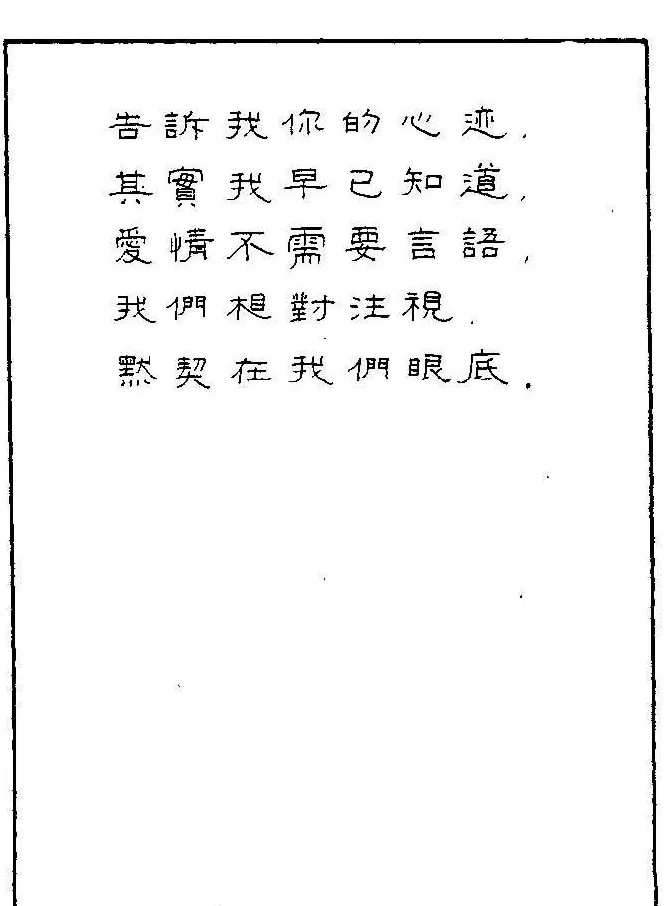 告訴我你的心迹,
其實我早已知道,
愛情不需要言語,
我們相對注視.
默契在我們眼底.